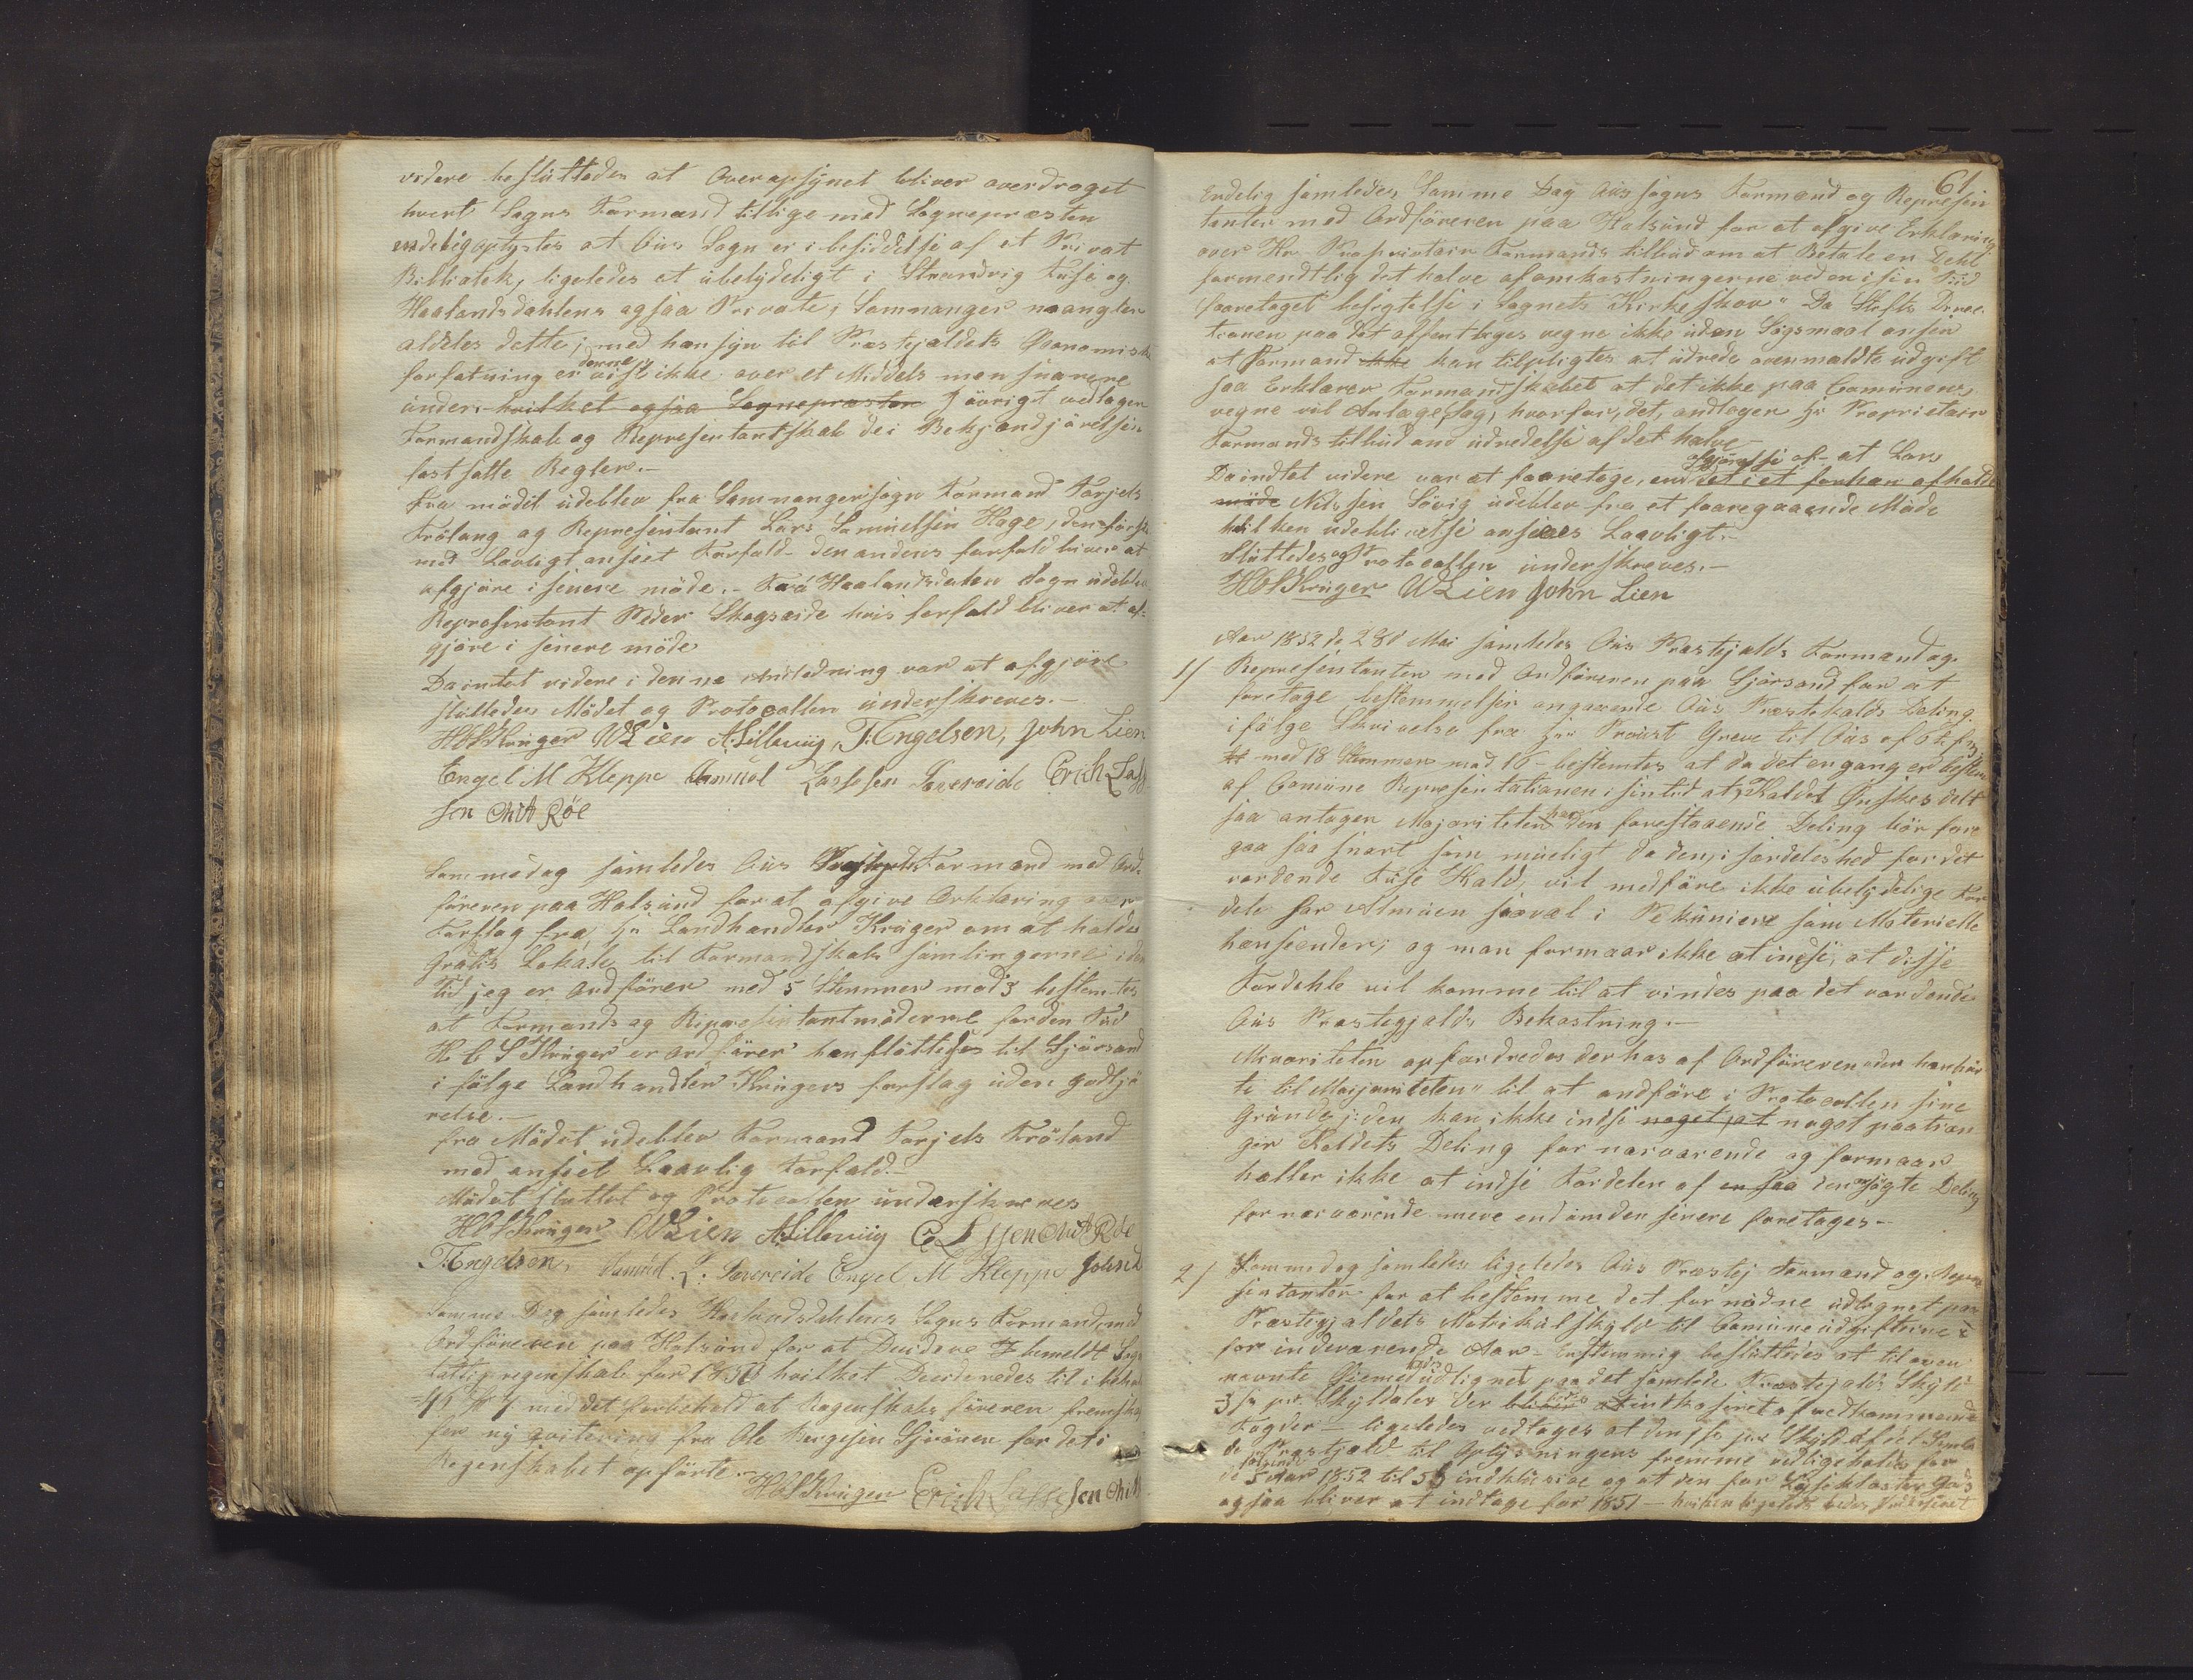 videre besluttedes at Overopsynet bliver overdraget
hvert Sogns Formænd tillige med Sognepræsten
endeligoplystes at Ous Sogn er i besiddelse af et Privat
Bibliothek, ligeledes et übetydeligt i Strandvig Fuse og
Haalandsdahlens ogsaa Private, Samnanger maangler
aldeles dette; med hensyn til Præstegjeldets Oeconomiske
forfatning er denne vist ikke over et Middels men snarere
under. hvilket ogsaa Sognepræsten I övrigt vedtagen
Formandskab og Representantskab de i Bekjendtgjörelsen
fastsatte Regler.-
Fra mödet udeblev fra Samnanger sogn Formand Torjels
Frölang og Representant Lars Samuelsen Hage, den förste
med Lovligt anseet Forfald - den andens forfald bliver at
afgjöre i senere möde. - Fra Haalandsdalen Sogn udeblev
Representant Peder Skogseide hvis forfald bliver at af-
gjöre i senere möde
Da intet videre i denne Anledning var at afgjöre
sluttedes Mödet og Protocollen underskreves.-
HCS Krüger WLien A. Lillevüg, T. Engelsen, John Lien
Engel M Kleppe Samuel Lassesen Sævereide Erich Lass
sen Ohid Röe
Sammedag samledes Ous Formænd med Ord-
föreren paa Halsund for at afgive Erklæring over
Forslag fra Hr Landhandler Krüger om at holdes
Gratis Lokale til Formandskabs samlingerne i den
Tid jeg er Ordförer med 5 Stemmer mod 3 bestemtes
at Formands og Representantmöderne for den Tid
H C S Krüger er ordförer henflöttedes til Sjörsand
i fölge Landhandler Krügers forslag uden godtgjö
relse.-
fra Mödet udeblev Formand Torjels Fröland
med anseet Laavlig Forfald.-
Mödet sluttet og Protocollen underskreves
HCS Krüger WLien A. Lillevüg
T. Engelsen, Samuel L. Sævereide Engel M Kleppe John L
Samme Dag samledes Haalandsdahlens Sogns Formænd med
Ordföreren paa Halsund for at Decidere bemeldte Sogns
fattig regenskab for 1850 hvilket Decideredes til i behold
med det forbehold at Regenskabs föreren fremska
fer ny qvitering fra Ole Bergesen for det i
Regenskabet opförte.-
HCS Krüger Erich Lassesen Ohid
61.
Endelig samledes Samme Dag Ous sogns Formænd og Represen
tanter med Ordföreren paa Halsund for at afgive Erklæring
over Hr. Proprietair Formands tilbud om at Betale en Dehl
formendtlig det halve af omkostningerne ved en i sin Tid
foretaget besigtelse i Sognets Kirkeskov" Da Stifts Direc-
tionen paa det offentlges vegne ikke uden Sögsmaal anser
at Formand ikke kan tilpligtes at udrede ovenmældte udgift
saa Erklærer Formandskabet at det ikke paa Comünens
vegne vil Anlæge Sag, hvorfor, det, andtager Hr Proprietair
Formands tilbud om udredelse af det halve-
Da indtet videre var at foretage, end afgjörelse af - at Lars
möde Nilssen Sövig udeblev fra et foregaaende Möde
hvilken udeblivelse ansees Laavligt.-
Sluttedes og Protocollen underskreves.-
HCS Krüger WLien John Lien
Aar 1852 d. 28d Mai samledes Ous Præstejelds Formænd og
1/ Representanter med Ordföreren paa Sjörsand for at
foretage bestemmelser angaaende Ous Præstekalds Deling
i fölge Skrivelse fra Hrr Proust Greve til Ous af
med 18 Stemmer mod 16 - bestemtes at da det engang er bestemt
af Comüne Representationen i sin tid at Kaldet Önskes delt
saa antager Majoriteten at den forestaaende Deling bör fore
gaa saa snart som mueligt da den, i særdeleshed for det
vordende Fuse Kald, vil medföre ikke übetydelige For
dele for Almuen saavel i Pekuniere som Materielle
henseender, og man formaar ikke at indse, at disse
Fordehle vil komme til at vindes paa det vordende
Ous Præstegjelds Bekostning.-
Minoriteten opfordredes derhos af Ordföreren "der hen hör
te til Majoriteten" til at andföre i Protocollen sine
Grunde: den kan ikke indse noget at noget paatræn
ger Kaldets Deling for nærværende og formaar
heller ikke at indse Fordelen af en saa den ansögte Deling
for nærværende mere end om den senere foretages-
2/ Sammedag samledes ligeledes Ous Præstej Formænd og Repre
sentanter for at bestemme det fornödne udlignet paa
Præstegjeldets Matrikulskyld til Comüne üdgifterne
for indeværende Aar - Enstemmig besluttedes at til oven
nævnte Öiemed udlignes paa det samlede Præstejelds Skyld
3 s pr. Skyldaler der bliver at indkaseret af vedkommende
Fogder - ligeledes vedtages at den s pr Skylddaler i det Samle
de Præstjeld til Oplysningens fremme vedligeholdes for
de 5 følgende Aar 1852 til 56 inklusive og at den for Lyseklosters Gods
ogsaa bliver at indtage for 1851 -